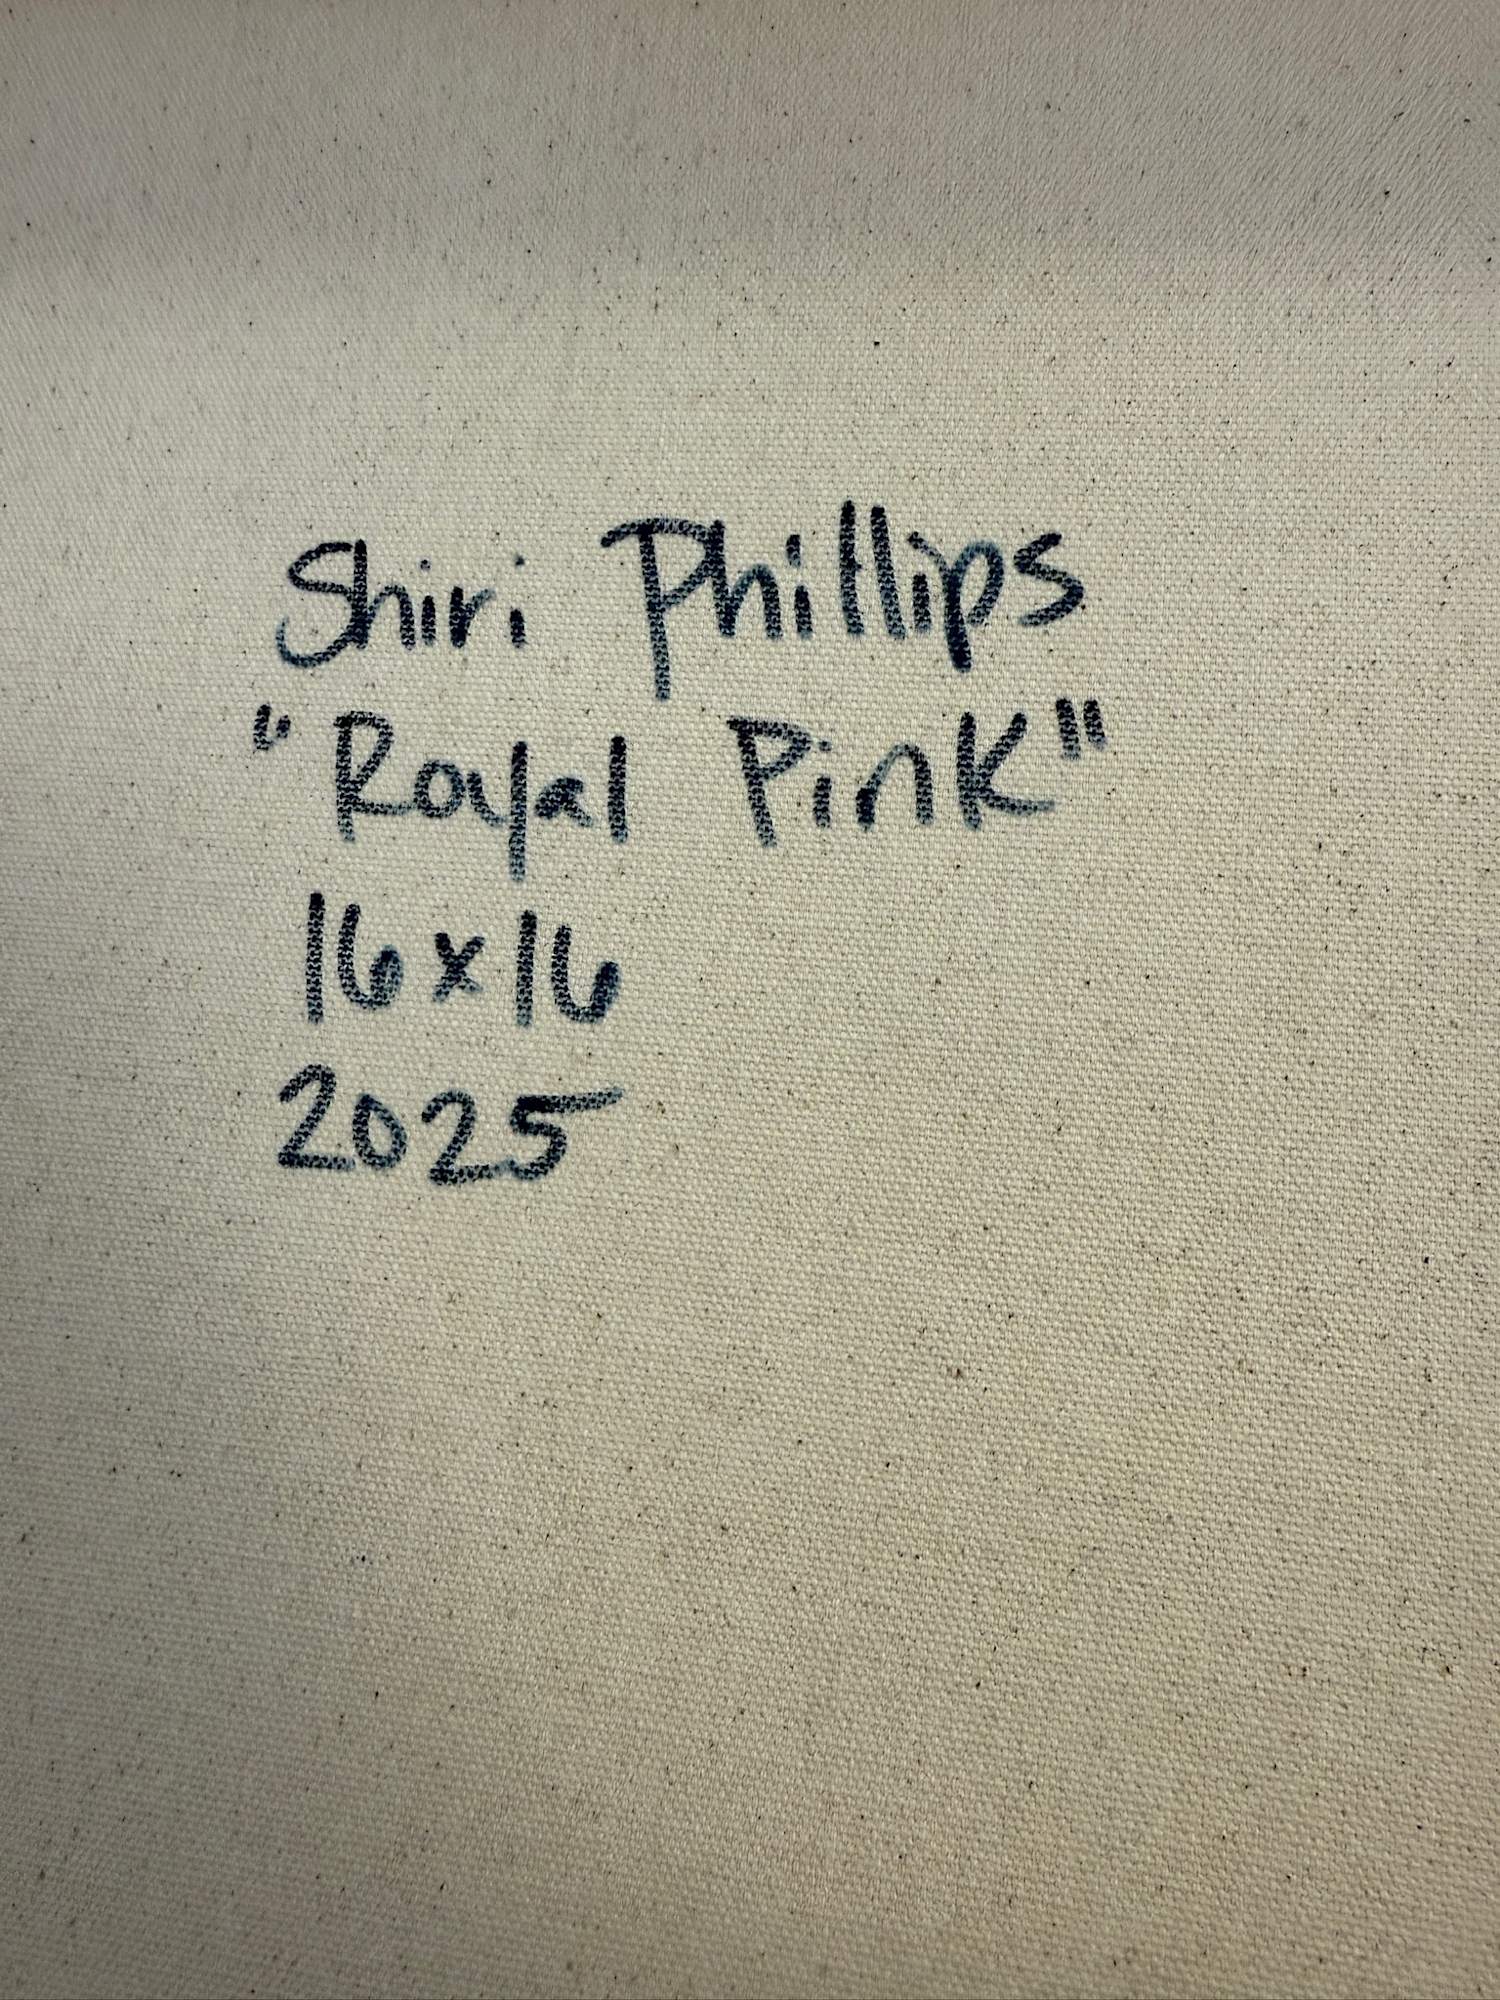 Shiri Phillips
"Royal Pink"
16x16
2025